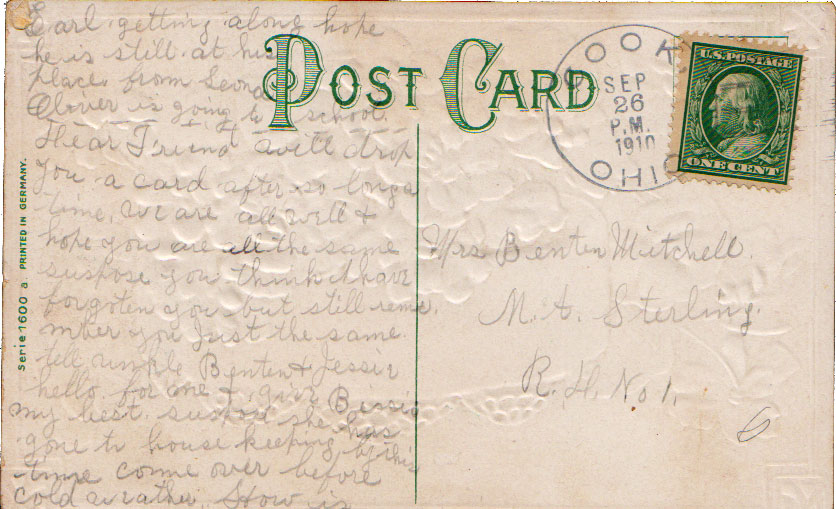 Earl getting along hope
he is still at his
place from Leona
Clover is going to school.
POST CARD
COOK
SEP
26
P.M.
1910
OHIO
U.S. POSTAGE
ONE CENT
Dear Friend will drop
you a card after so long a
time, we are all well &
hope you are all the same
suspose you think I have
forgoten you but still reme
mber you Just the same.
tell unkle Benten & Jessie
hello for me & give Bessie
my best. suspose she has
gone to house keeping by this
time come over before
cold weather. How is
Mrs Benten Mitchell.
Mt. Sterling.
R.D. No 1.
6
Serie 1600 a PRINTED IN GERMANY.